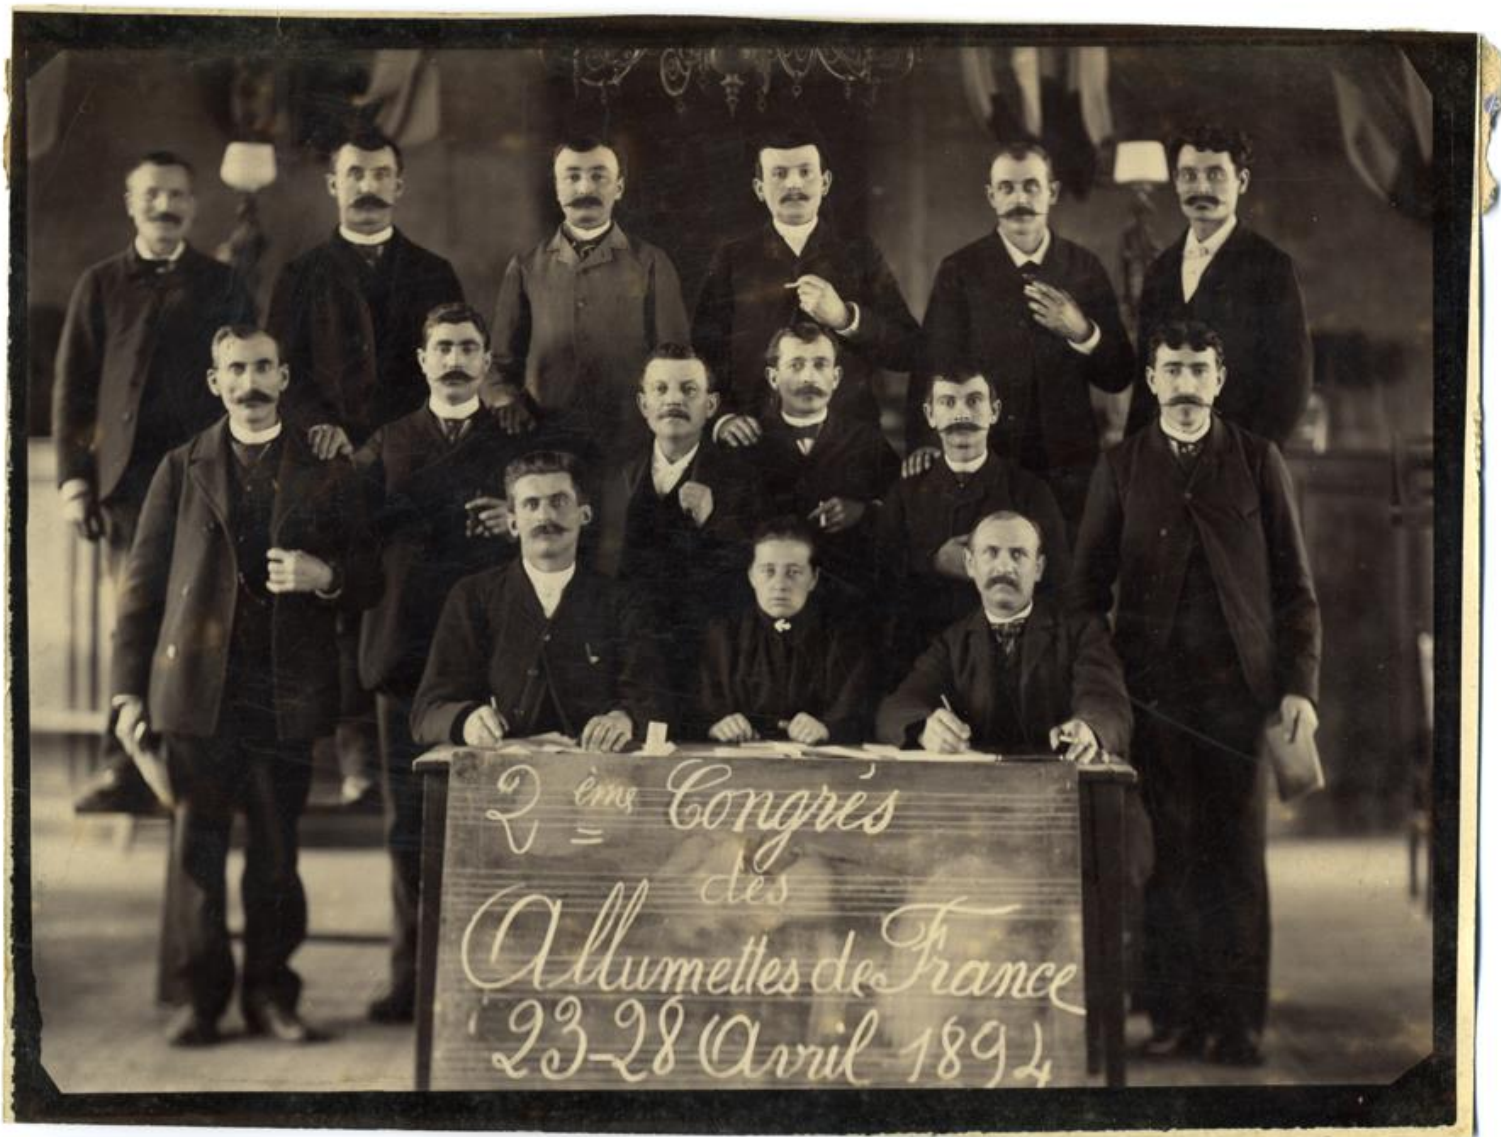 2ème Congrès
des
Allumettes de France
23-28 Avril 1894